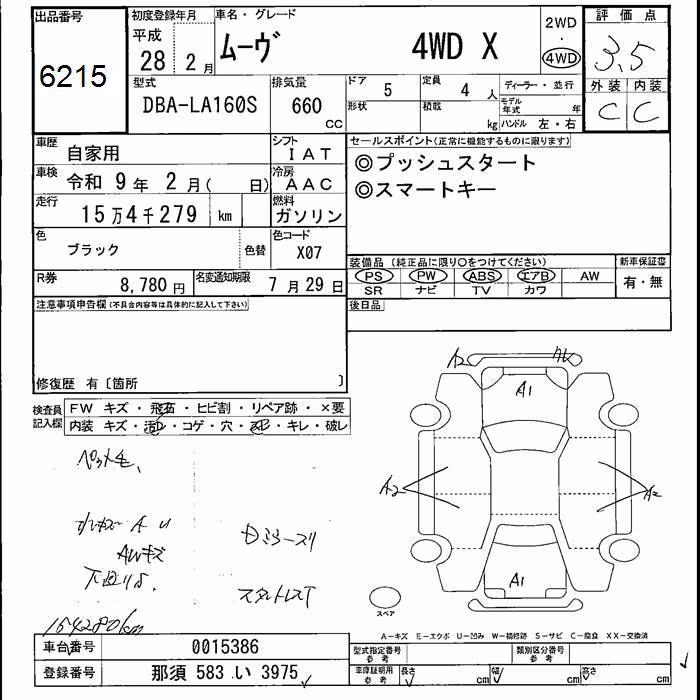 出品番号 初度登録年月 車名・グレード 評価点
6215 平成 28 2月 ムーヴ 4WD X 2WD ・ 4WD 3.5
型式 排気量 ドア 5 定員 4 人 ディーラー・並行 外装 内装
DBA-LA160S 660 CC 形状 積載 kg モデル年式 年 ハンドル 左・右 C C
車歴 自家用 シフト IAT セールスポイント(正常に機能するものに限ります)
◎プッシュスタート
車検 令和 9年 2月( 日) 冷房 AAC ◎スマートキー
走行 15万4千279 km 燃料 ガソリン
色 ブラック 色替 色コード X07
装備品 (純正品に限り○をつけてください) 新車保証書
PS PW ABS エアB AW 有・無
SR ナビ TV カワ
R券 8,780円 名変通知期限 7月29日
後日品
注意事項申告欄(不具合内容等は具体的に記入して下さい)
修復歴 有〔箇所 〕
検査員記入欄 FW キズ・飛石・ヒビ割・リペア跡・×要
内装 キズ・汚レ・コゲ・穴・スレ・キレ・破レ
ペット毛、
A U
AWキズ
下回りS
Dミラースリ
スタットレスT
154280km
A2
A1
A2
A2
A1
スペア
A-キズ E-エクボ U-凹み W-補修跡 S-サビ C-腐食 XX-交換済
車台番号 0015386 型式指定番号 参考 類別区分番号 参考
登録番号 那須 583 い 3975 車庫証明用 参考 長さ cm 幅 cm 高さ cm